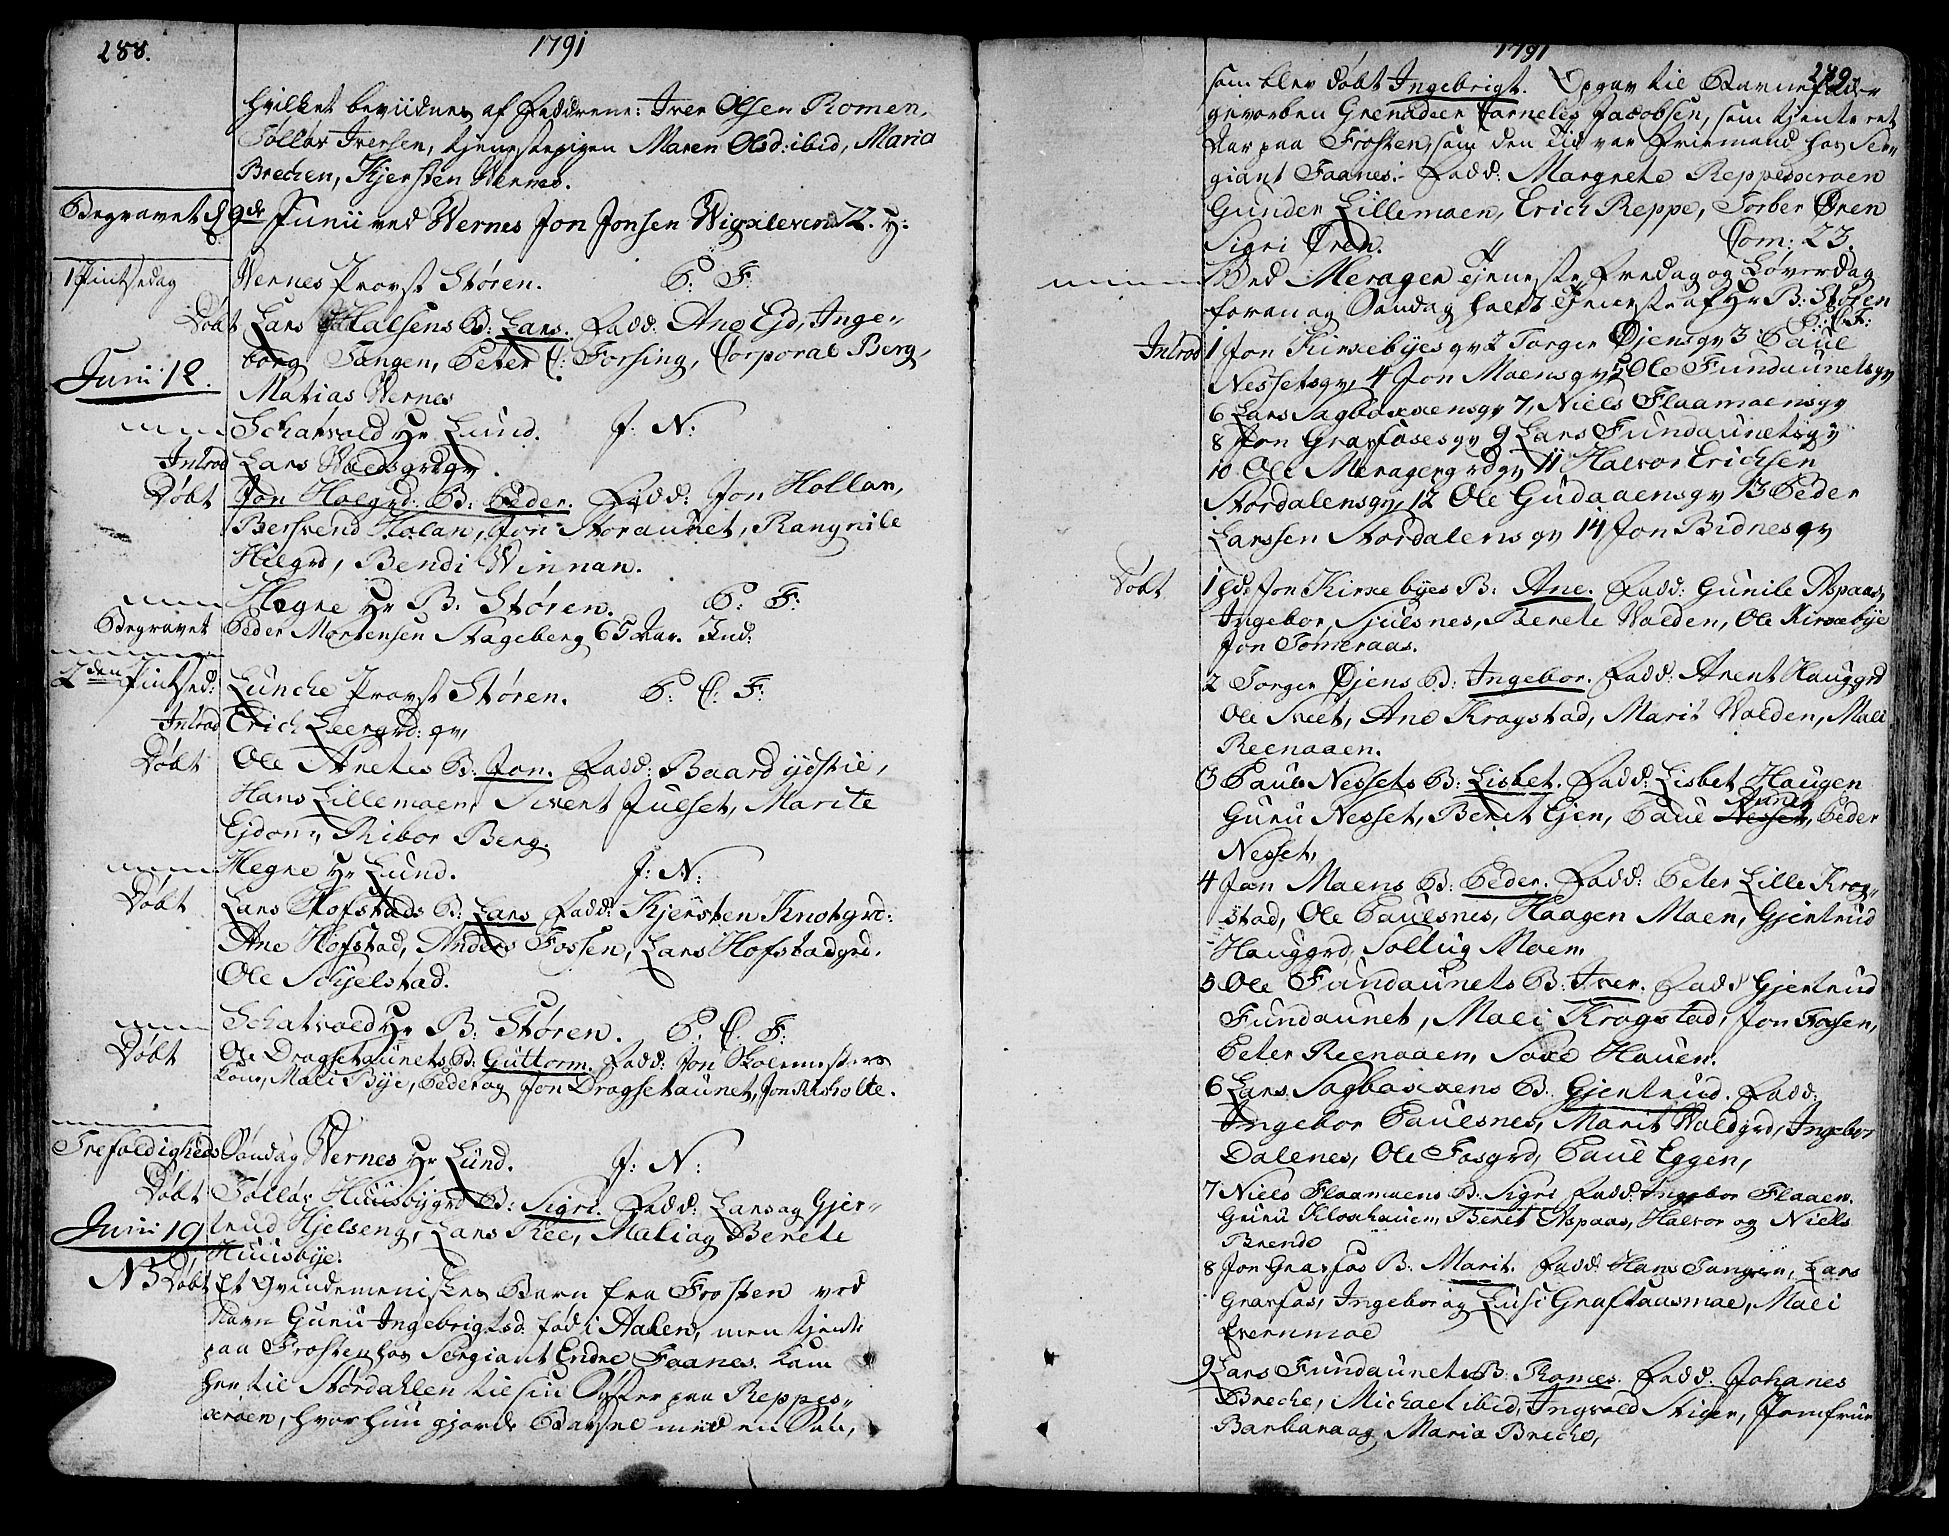 288.
1791
hvilket bevidnes af Faddrene: Iver Olsen Romen,
Tollov Iversen, tienestepigen Maren Olsd: ibid, Maria
Brechen, Kjersten Wernes.
Begravet d 9de Junii ved Wernes Jon Jonsen Wigxleven 72. Y:
1 Pintsedag Wernes Provst Støren. P. F:
Døbt Lars Halsens B: Lars. Fadd: Ane Ejd, Inge-
borg Tangen, Peter C: Forsing, Corporal Berg,
Juni 12.
Matias Wernes
Schatvold Hr Lund. J: N:
Introd Lars Woldsgrdqv.
Døbt Jon Holgrd: B: Peder. Fadd: Jon Hollan,
Bersvend Holan, Jon Storaunet, Rangnile
Helgrd, Bendi Winnan.
Hegne Hr B: Støren. P: F:
Begravet Peder Mortensen Stageberg 65 Aar. Ind:
2den Pintsed: Lunche Provst Støren. P. C. F:
Introd Erich Leergrd: qv,
Døbt Ole Aretes B: Jon. Fadd: Baard ydstie,
Hans Lillemoen, Sivert Julset, Marite
Ejdon, Thibor Berg.
Hegne Hr Lund. J: N:
Døbt Lars Hofstads B: Lars Fadd: Kjersten Knotgrd:
Ane Hofstad, Anders Fossen, Lars Hofstadgrd.
Ole Schjelstad.
Schatvold Hr B: Støren. P. C. F:
Døbt Ole Dragsetaunets B: Guttorm. Fadd: Jon Skolemesters
kone, Mali Bye, Peder og Jon Dragsetaunet, Jon Risholte.
Trefoldigheds Søndag Wernes Hr Lund. J: N:
Døbt Tollov Huusbygrd B: Sigri. Fadd: Lars og Gjer-
Juni 19 trud Hjelseng, Lars Ree, Mali og Berete
Huusbye.
NB Døbt Et Qvindemenniskes Barn fra Frosten ved
Navn Guru Ingebrigtsd. fød i Aalen, men tjente
paa Frosten hos Sergiant Endre Faanes. Kom
her til Størdahlen til sin Syster paa Reppes-
æroen, hvor hun gjorde Barsel med en Søn,
1791
289
som blev døbt Ingebrigt. Opgav til Barnefader
gevorben Grenadeer Corneles Jacobsen, som tjente ret
Aar paa Frosten, som den Tid var Friemand hos Ser-
giant Faanes. Fadd: Margrete Reppesæroen
Gunder Lillemoen, Erich Reppe, Torber Øren
Sigri Øren. Com: 23.
Ved Merager Tjeneste Fredag og Løverdag
foran og Søndag holdt Tjeneste af Hr B: Støren
P: C: F:
Introd 1 Jon Kirkebyes qv 2 Torger Øjens qv 3 Paul
Nessets qv, 4 Jon Moens qv 5 Ole Fundaunets qv
6 Lars Sagbakkens qv 7, Niels Flaamoens qv
8 Jon Graafoses qv 9 Lars Fundaunets qv
10 Ole Meragergrds qv 11 Halvor Erichsen
Stordalens qv, 12 Ole Gudaaens qv 13 Peder
Larssen Stordalens qv 14 Jon Bidnes qv
Døbt 1 Jon Kirkebyes B: Ane. Fadd: Gunile Aspaas,
Ingebor Sjulsnes, Berete Volden, Ole Kirkebye
Jon Tømeraas.
2 Torger Øjens B: Ingebor. Fadd: Arent Hauggrd
Ole Sveet, Ane Krogstad, Marit Volden, Mali
Reenaaen.
3 Pauls Nessets B: Lisbet. Fadd: Lisbet Haugen
Guru Nesset, Berit Ejen, Paul Nesset, Peder
Nesset,
4 Jon Moens B: Peder. Fadd: Peter Lille Krog-
stad, Ole Paulsnes, Haagen Moen, Gjertrud
Hauggrd, Sollug Moen.
5 Ole Fundaunets B: Iver. Fadd Gjertrud
Fundaunet, Mali Krogstad, Jon Fossen,
Peter Reenaaen, Hauen.
6 Lars Sagbakkens B. Gjertrud. Fadd:
Ingebor Paulsnes, Marit Woldgrd, Ingebor
Dalenes, Ole Fosgrd, Paul Eggen,
7 Niels Flaamoens B. Sigri Fadd: Ingebor Flaaen.
Guru Kloxhauen, Beret Aspaas, Halvor og Niels
Brende
8 Jon Graafos B. Marit. Fadd: Hans Tangen, Lars
Graafos, Ingebor og Lusi Graftaasmoe, Mali
Evernmoe
9 Lars Fundaunets B: Thomes. Fadd. Johanes
Breche, Michael ibid, Ingvold Stiger, Jomfrue
Barbara og Maria Breche,